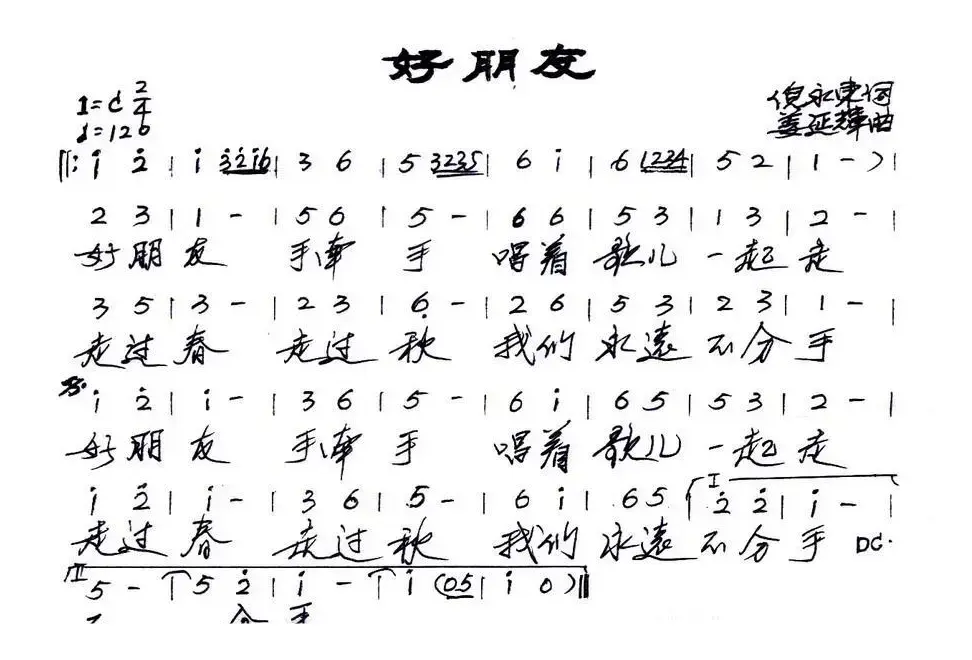 好朋友
1=C 2/4
♩=126
倪永东词
姜延辉曲
‖: i̇ 2̇ | i̇ 3̇2̇i̇6 | 3 6 | 5 3235 | 6 i̇ | 6 1234 | 5 2 | 1 - ) |
2 3 | 1 - | 5 6 | 5 - | 6 6 | 5 3 | 1 3 | 2 - |
好朋友 手牵手 唱着歌儿一起走
3 5 | 3 - | 2 3 | 6̣ - | 2 6 | 5 3 | 2 3 | 1 - |
走过春 走过秋 我们永远不分手
i̇ 2̇ | i̇ - | 3 6 | 5 - | 6 i̇ | 6 5 | 5 3 | 2 - |
好朋友 手牵手 唱着歌儿一起走
I
i̇ 2̇ | i̇ - | 3 6 | 5 - | 6 i̇ | 6 5 | 2̇ 2̇ | i̇ - |
走过春 走过秋 我们永远不分手 DC.
II
5 - | 5 2̇ | i̇ - | i̇ (05 | i̇ 0 )‖